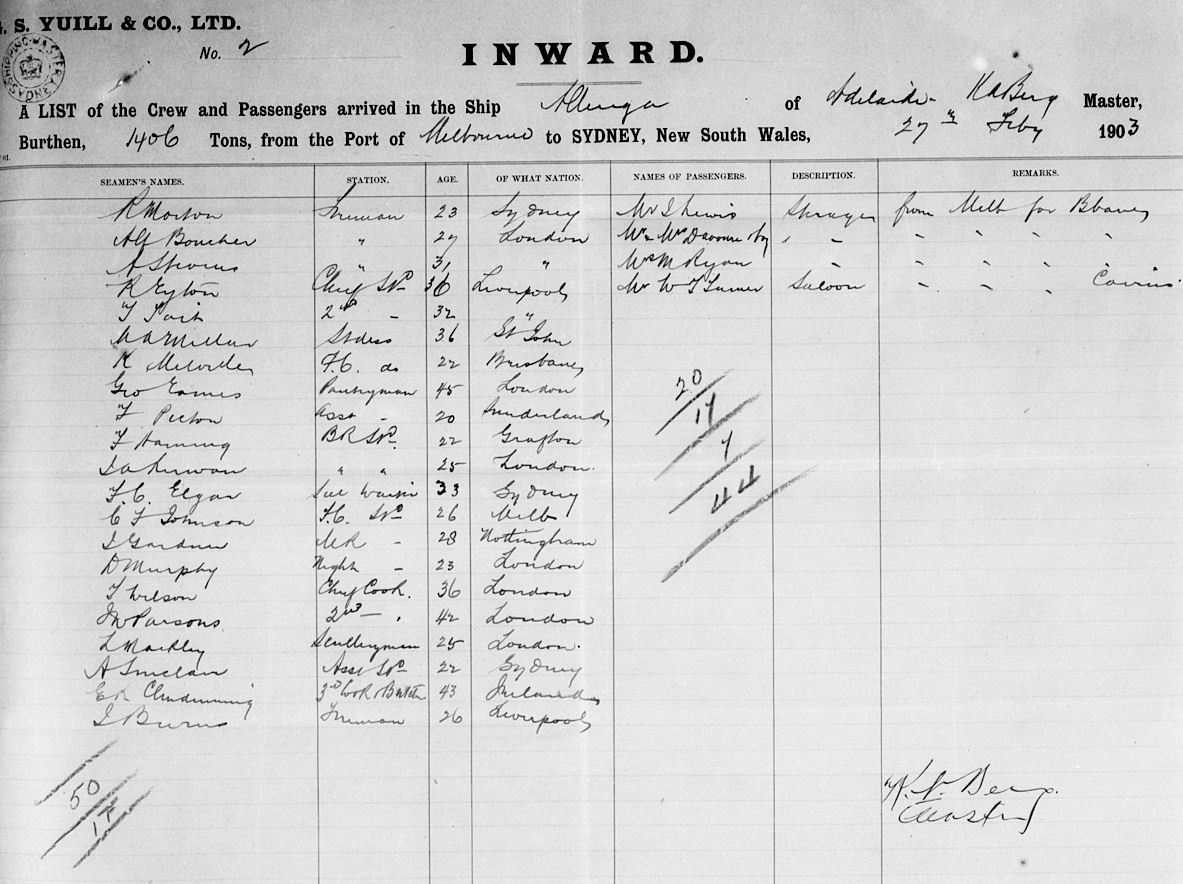 S. YUILL & CO., LTD.
No. 2
SHIPPING MASTER SYDNEY
INWARD.
A LIST of the Crew and Passengers arrived in the Ship Allinga of Adelaide Master,
Burthen, 1406 Tons, from the Port of Melbourne to SYDNEY, New South Wales, 27 Feby 1903
SEAMEN'S NAMES. STATION. AGE. OF WHAT NATION. NAMES OF PASSENGERS. DESCRIPTION. REMARKS.
R Morton Fireman 23 Sydney Mr Lewis from Melb for
Alf Boucher " 27 London
A Stevens " 31 " Ryan
R Eyton Chief 36 Liverpool Mr W Turner Saloon
2nd - 32 "
Stdess 36 St John
K Melville F.C. do 22 Brisbane
Geo Eames Pantryman 45 London
F Picton Asst - 20 Sunderland
F BR 22 Grafton
Kirwan " " 25 London.
F.C. Elgar 33 Sydney
C F Johnson F.C. 26 Melb
Gardner - 28 Nottingham
D Murphy Night - 23 London
T Wilson Chief Cook. 36 London
Parsons 2nd - 42 London
L Markley Sculleryman 25 London.
A Sinclair Asst 22 Sydney
Clendinning 3rd 43 Ireland
Burns Fireman 26 Liverpool
20
17
7
44
50
17
Berg
Master